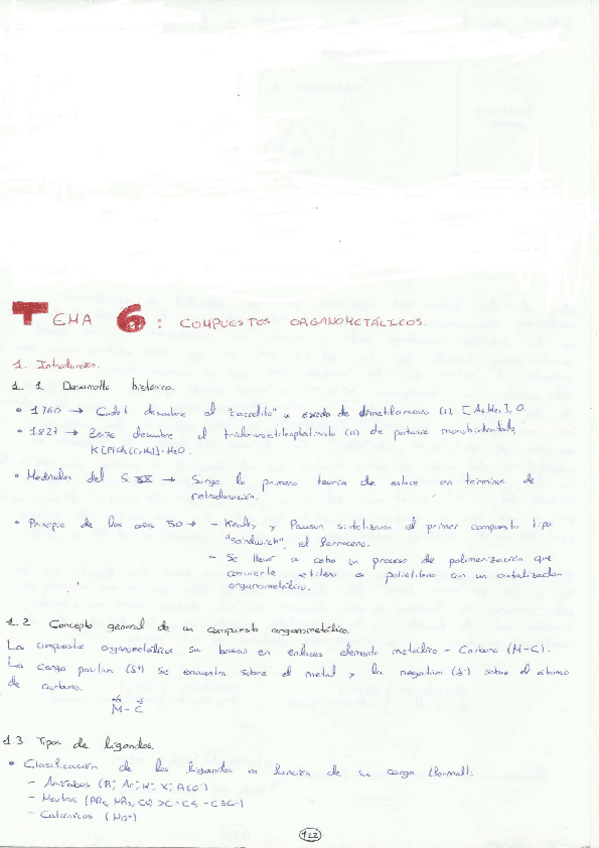 TEMA 6: COMPUESTOS ORGANOMETÁLICOS.
1. Introducción.
1.1 Desarrollo histórico.
• 1760 → Cadet descubre el "cacodilo" u óxido de
• 1827 → Zeise descubre el de potasio monohidratado,
K[PtCl3(C2H4)]·H2O.
• Mediados del S. XX → Surge la primera teoría de enlace en términos de
retrodonación.
• Principio de los años 50 → - Kealy y Pauson sintetizaron el primer compuesto tipo
"sandwich", el ferroceno.
- Se llevó a cabo un proceso de polimerización que
convierte etileno en polietileno con un catalizador
organometálico.
1.2 Concepto general de un compuesto organometálico.
Los compuestos organometálicos se basan en enlaces elemento metálico - Carbono (M-C).
La carga positiva (δ+) se encuentra sobre el metal y la negativa (δ-) sobre el átomo
de carbono.
δ+ δ-
M - C
1.3 Tipos de ligandos.
• Clasificación de los ligandos en función de su carga (formal):
- Aniónicos
- Neutros
- Catiónicos (NO+)
122